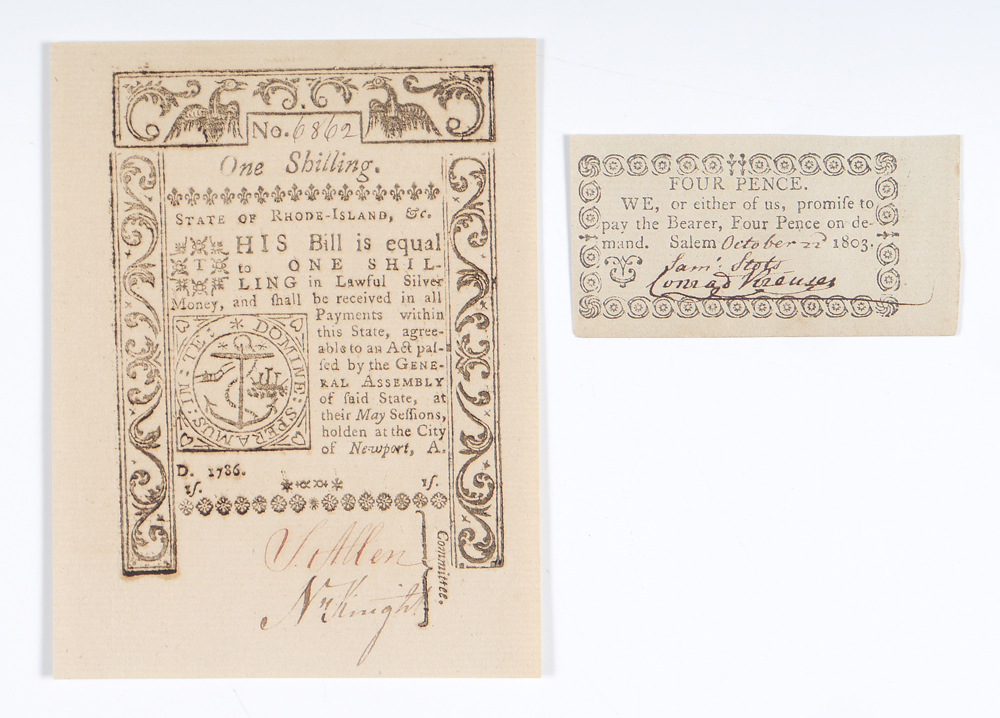 No. 6862
One Shilling.
STATE OF RHODE-ISLAND, &c.
THIS Bill is equal
to ONE SHIL-
LING in Lawful Silver
Money, and ſhall be received in all
Payments within
this State, agree-
able to an Act paſ-
ſed by the GENE-
RAL ASSEMBLY
of ſaid State, at
their May Seſſions,
holden at the City
of Newport, A.
D. 1786.
1ſ. 1ſ.
IN : TE : DOMINE : SPERAMUS :
S. Allen
N. Knight
Committee.
FOUR PENCE.
WE, or either of us, promiſe to
pay the Bearer, Four Pence on de-
mand. Salem October 22d 1803.
Sam.l Stots
Conrad